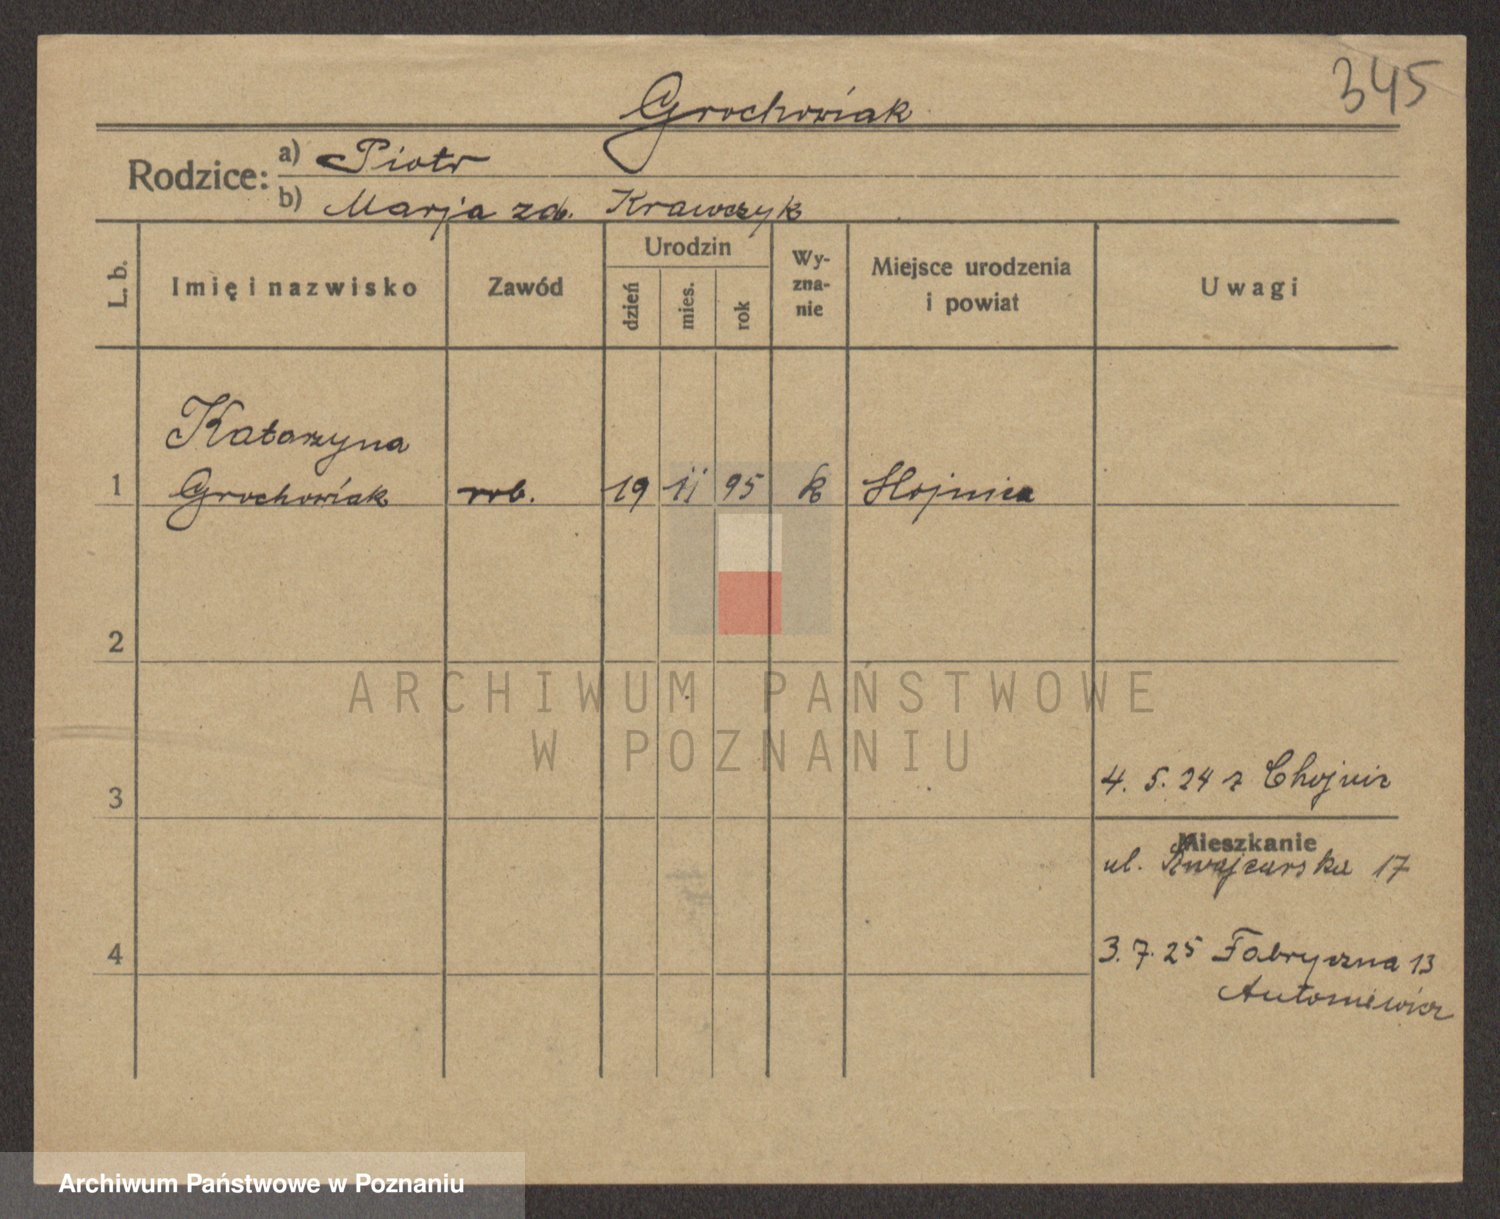 345
Grochowiak
Rodzice: a) Piotr
b) Marja zd. Krawczyk
L. b.
Imię i nazwisko
Zawód
Urodzin
dzień
mies.
rok
Wy-
zna-
nie
Miejsce urodzenia
i powiat
Uwagi
Katarzyna
1 Grochowiak rob. 19 11 95 k
2
ARCHIWUM PAŃSTWOWE
W POZNANIU
4. 5. 24 z Chojnic
3
Mieszkanie
ul. 17
3. 7. 25 Fabryczna 13
4
Antoniewicz
Archiwum Państwowe w Poznaniu